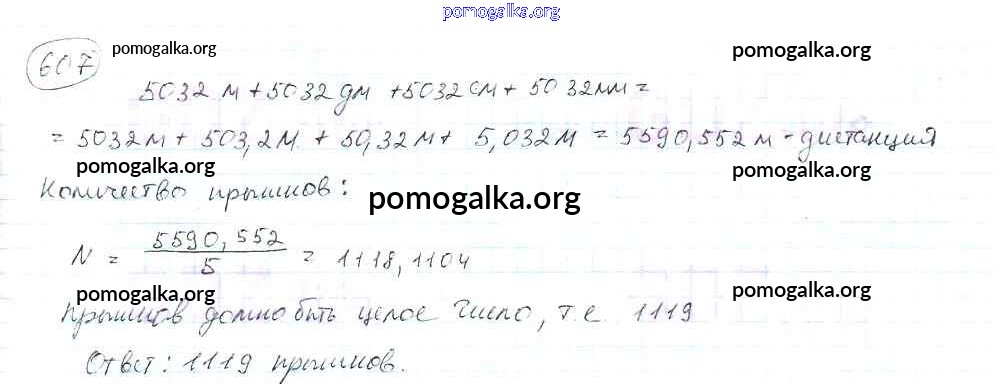 pomogalka.org
607 pomogalka.org pomogalka.org
5032 м + 5032 дм + 5032 см + 5032 мм =
= 5032 м + 503,2 м + 50,32 м + 5,032 м = 5590,552 м - дистанция
pomogalka.org pomogalka.org
Количество прыжков:
pomogalka.org
N = 5590,552 / 5 = 1118,1104
pomogalka.org pomogalka.org
Прыжков должно быть целое число, т.е 1119
Ответ: 1119 прыжков.